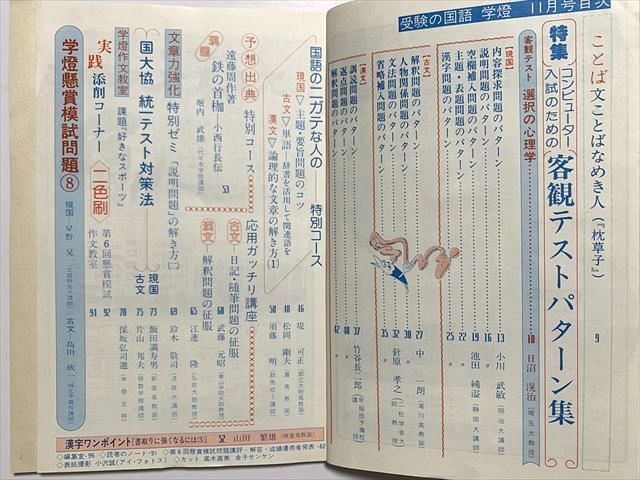 受験の国語 学燈 11月号目次
ことば文ことばなめき人（『枕草子』） 9
特集 コンピューター入試のための 客観テストパターン集
客観テスト 選択の心理学 10 日沼 滉治（埼玉大教授）
【現国】
内容探求問題のパターン 13 小川 武敏（明治大講師）
説明問題のパターン 16 〃
空欄補入問題のパターン 19 池田 純溢（静岡大講師）
主題・表題問題のパターン 22 〃
漢字問題のパターン 25 〃
【古文】
解釈問題のパターン 27 中 一朗（湘川高教諭）
人物関係問題のパターン 30 〃
文法問題のパターン 32 針原 孝之（二松学舎大助教授）
省略補入問題のパターン 35 〃
【漢文】
訓読問題のパターン 37 竹谷長二郎（早稲田予備校講師）
返点問題のパターン 40 〃
解釈問題のパターン 42 〃
国語のニガテな人の 特別コース
現国▽主題・要旨問題のコツ 46 堤 可正
古文▽単語―辞書を活用して関連語を 48 松岡 剛夫
漢文▽論理的な文章の解き方（1） 50 須藤 明
予想出典 特別コース
遠藤周作著
鉄の首枷 小西行長伝 53
堀内 武雄（代々木学院講師）
応用ガッチリ講座
古文 日記・随筆問題の征服 60 武藤 元昭（青山学院大助教授）
漢文 解釈問題の征服 65 江連 隆（弘前大助教授）
文章力強化 特別ゼミ「説明問題」の解き方(二) 69 鈴木 敬司（法政大講師）
国大協 統一テスト対策法
現国 73 飯田満寿男
古文 75 片山 邦夫
学燈作文教室 課題「好きなスポーツ」 78 保坂弘司選
実践 添削コーナー〈二色刷〉
第6回懸賞模試 92
作文教室 91
学燈懸賞模試問題⑧ 現国―星野 晃 古文―島田 欣一
漢字ワンポイント〔書取りに強くなるには(3)〕 52 山田 繁雄（暁星高教諭）
◇編集室・96 ◇読者のノート・91 ◇第6回懸賞模試問題講評・解答・成績優秀者発表・82
◇表紙撮影 小沢誠（アイ・フォトス） ◇カット 高木直美 金子センケン